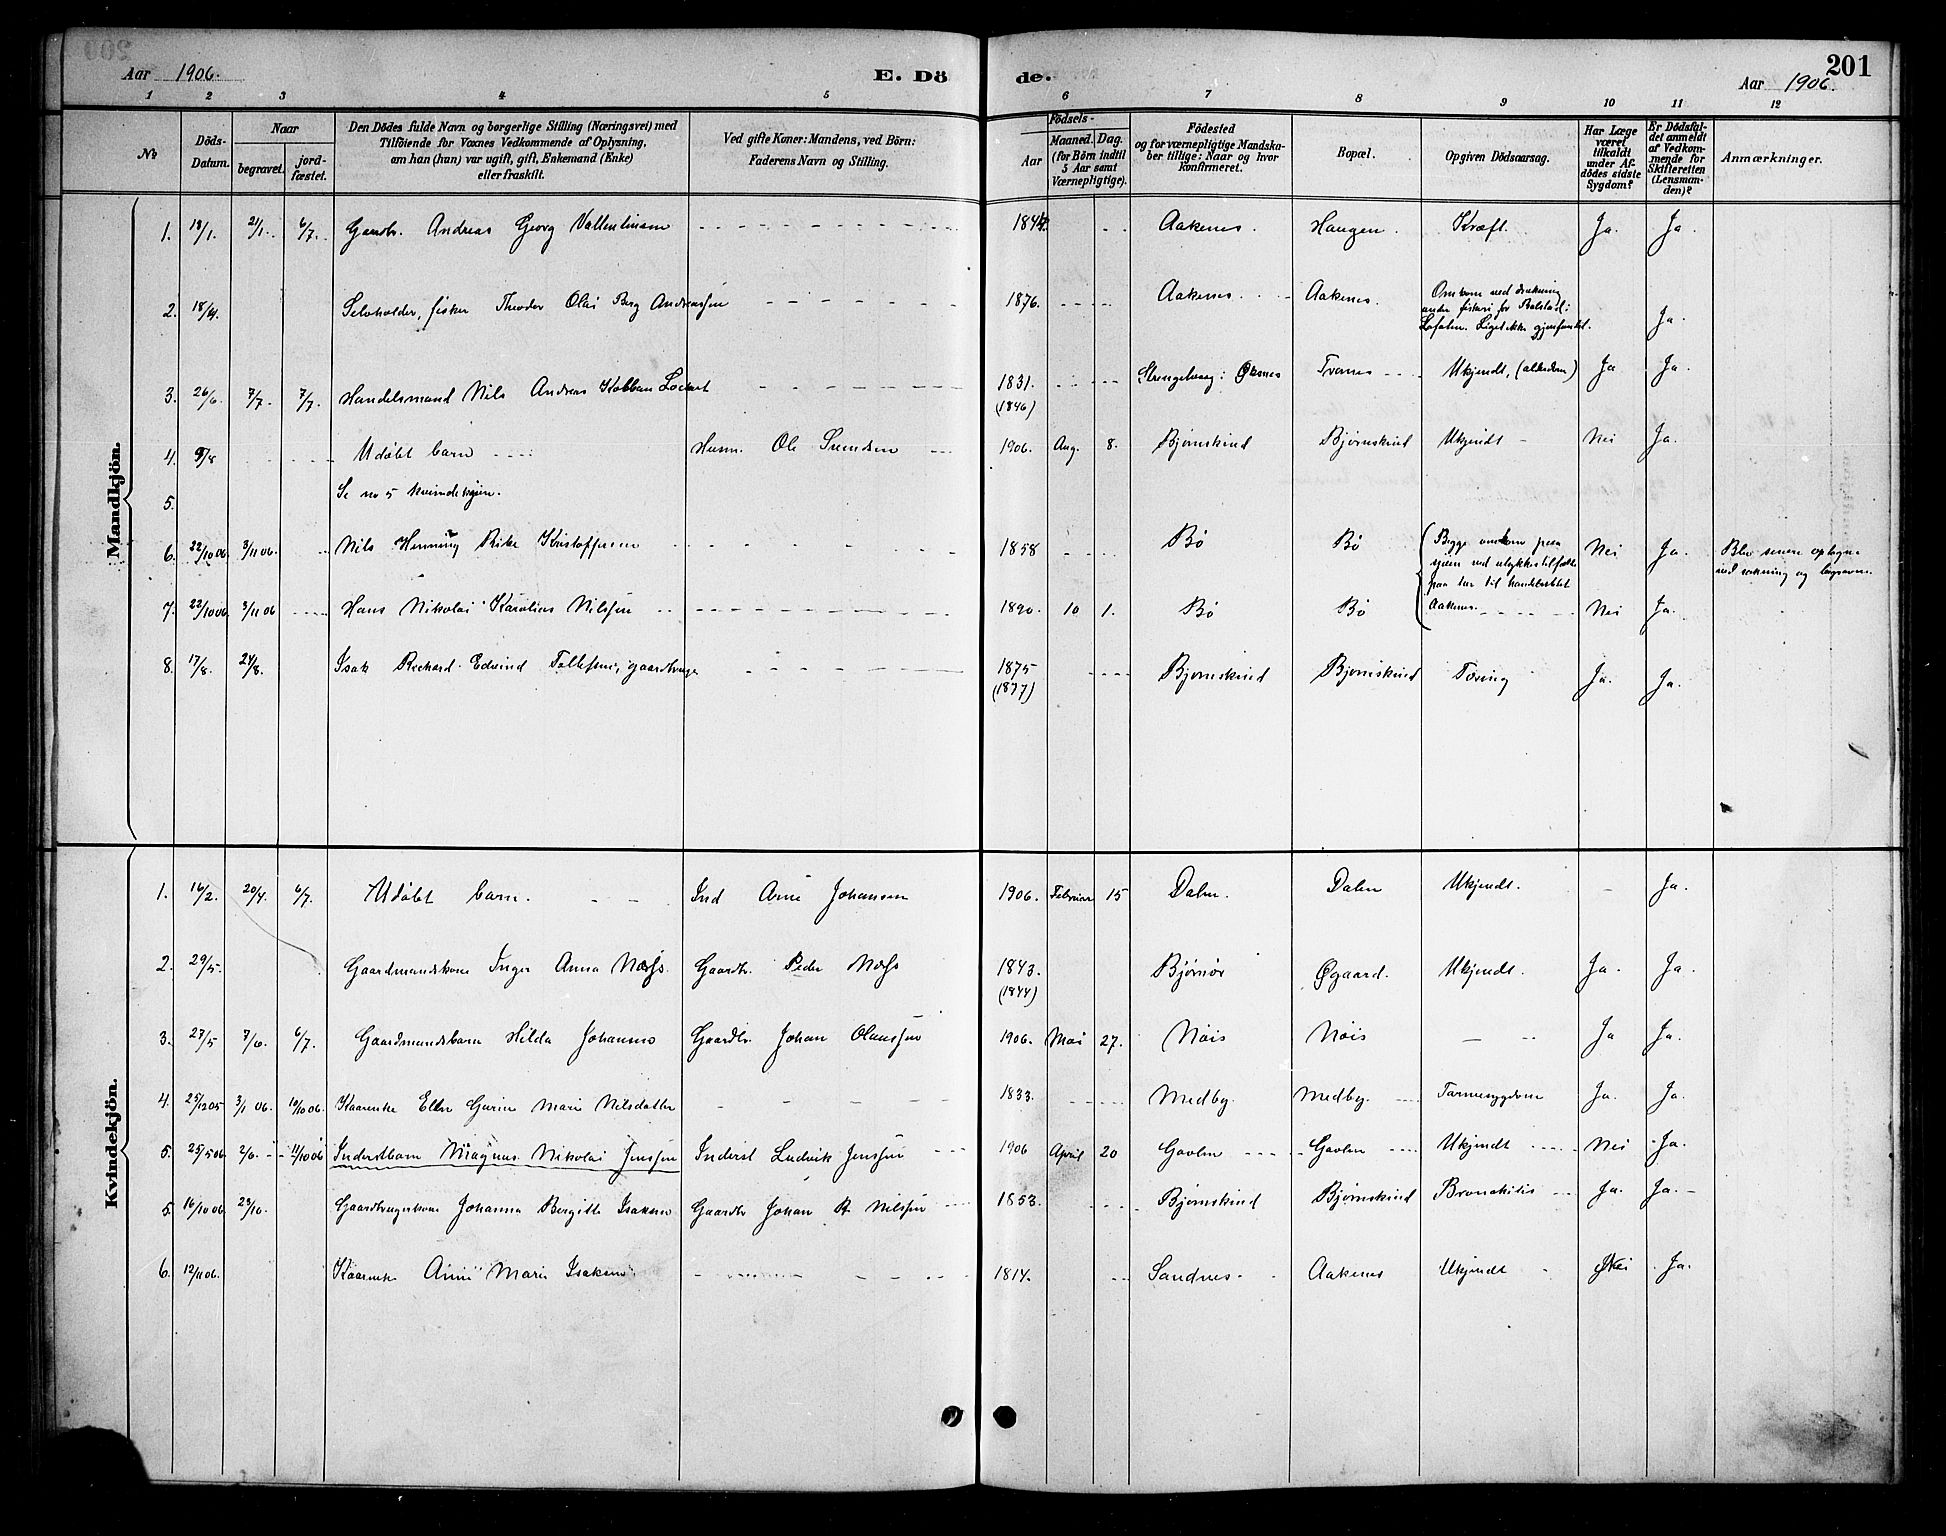 Aar 1906. E. Dö de. Aar 1906. 201
1 2 3 4 5 6 7 8 9 10 11 12
№
Döds-Datum.
Naar
begravet. jord-fæstet.
Den Dödes fulde Navn og borgerlige Stilling (Næringsvei) med
Tilföiende for Voxnes Vedkommende af Oplysning,
om han (hun) var ugift, gift, Enkemand (Enke)
eller fraskilt.
Ved gifte Koner: Mandens, ved Börn:
Faderens Navn og Stilling.
Födsels-
Aar Maaned. Dag.
(for Börn indtil
5 Aar samt
Værnepligtige).
Födested
og for værnepligtige Mandska-
ber tillige: Naar og hvor
konfirmeret.
Bopæl.
Opgiven Dödsaarsag.
Har Læge
været
tilkaldt
under Af-
dödes sidste
Sygdom?
Er Dödsfal-
det anmeldt
af Vedkom-
mende for
Skifteretten
(Lensman-
den)?
Anmærkninger.
Mandkjön.
1. 13/1. 21/1. 6/7. Gaardbr. Andreas Georg Vallentinsen 1844. Aakenes. Haugen. Kræft. Ja. Ja.
2. 18/4. Selvholder, fisker Theodor Olai Berg Andreassen 1876. Aakenes. Aakenes. Omkom ved drukning
under fiskeri for Balstad i
Lofoten. Liget ikke gjenfundet. Ja.
3. 26/6. 7/7. 7/7. Handelsmand Nils Andreas Kobban Lockert 1831. (1846) Strengelvaag i Øksnes Tranes Ukjendt, (alderdom) Ja Ja.
4. 9/8 Udöbt barn Husm. Ole Svendsen 1906. Aug. 8. Bjørnskind Bjørnskind Ukjendt Nei Ja.
5. Se no 5 kvindekjøn.
6. 22/10 06. 3/11 06. Nils Henning Rike Kristoffersen 1858 Bø Bø Begge omkom paa
sjøen ved ulykkestilfælde
paa tur til handelsstedet
Aakenes. Nei Ja. Blev senere optagne
ved sokning og begravne.
7. 22/10 06 3/11 06 Hans Nikolai Karolius Nilssen 1890. 10 1. Bø Bø Nei Ja.
8. 17/8. 24/8. Isak Reckard Edvind Tollefsen, gaardbruger 1875 (1877) Bjørnskind Bjørnskind Tæring Ja. Ja.
Kvindekjön.
1. 16/2. 20/4. 6/7. Udöbt barn. Ind Arne Johansen 1906. Februar 15 Dalen. Dalen Ukjendt. Ja.
2. 29/5. Gaardmandskone Inger Anna Næss. Gaardbr. Peder Næss 1843. (1844) Bjørnör Øgaard. Ukjendt. Ja. Ja.
3. 27/5 7/6. 6/7. Gaardmandsbarn Hilda Johansen Gaardbr. Johan Olaussen 1906. Mai 27. Nöis Nöis Ja Ja.
4. 25/12 05 3/1 06. 10/10 06. Kaarenke Ellen Gurine Marie Nilsdatter 1833. Medby. Medby. Tarmsygdom Ja. Ja.
5. 25/5 06 2/6. 11/10 06 Inderstbarn Magnus Nikolai Jenssen Inderst Ludvik Jenssen 1906 April 20 Gavlen Gavlen Ukjendt Nei Ja.
5. 16/10 06. 23/10. Gaardbrugerkone Johanna Bergitte Isaksen Gaardbr Johan A. Nilssen 1853. Bjørnskind Bjørnskind Bronchitis Ja. Ja.
6. 12/11 06. Kaarenke Anne Marie Isaksen. 1814. Sandnes. Aakenes Ukjendt Nei Ja.